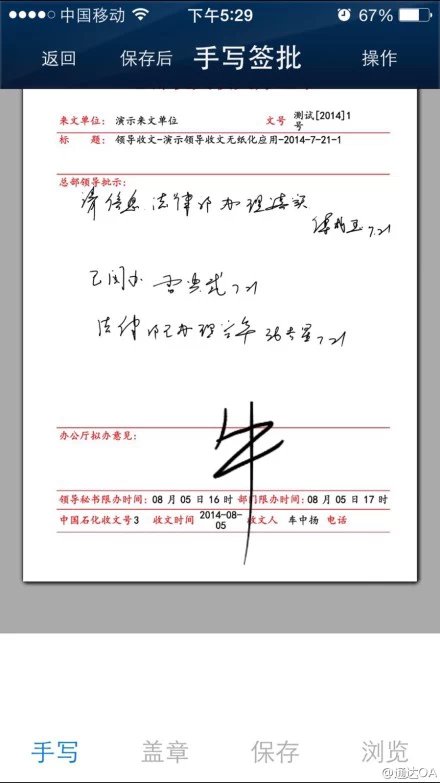 中国移动 下午5:29 67%
返回 保存后 手写签批 操作
来文单位: 演示来文单位 文号 测试[2014]1号
标 题: 领导收文-演示领导收文无纸化应用-2014-7-21-1
总部领导批示:
请信息、法律部办理落实
7.21
已阅办 7.21
法律部已办理完毕 7.21
办公厅拟办意见:
牛
领导秘书限办时间: 08 月 05 日 16 时 部门限办时间: 08 月 05 日 17 时
中国石化收文号3 收文时间 2014-08-05 收文人 车中扬 电话
手写 盖章 保存 浏览
@通达OA